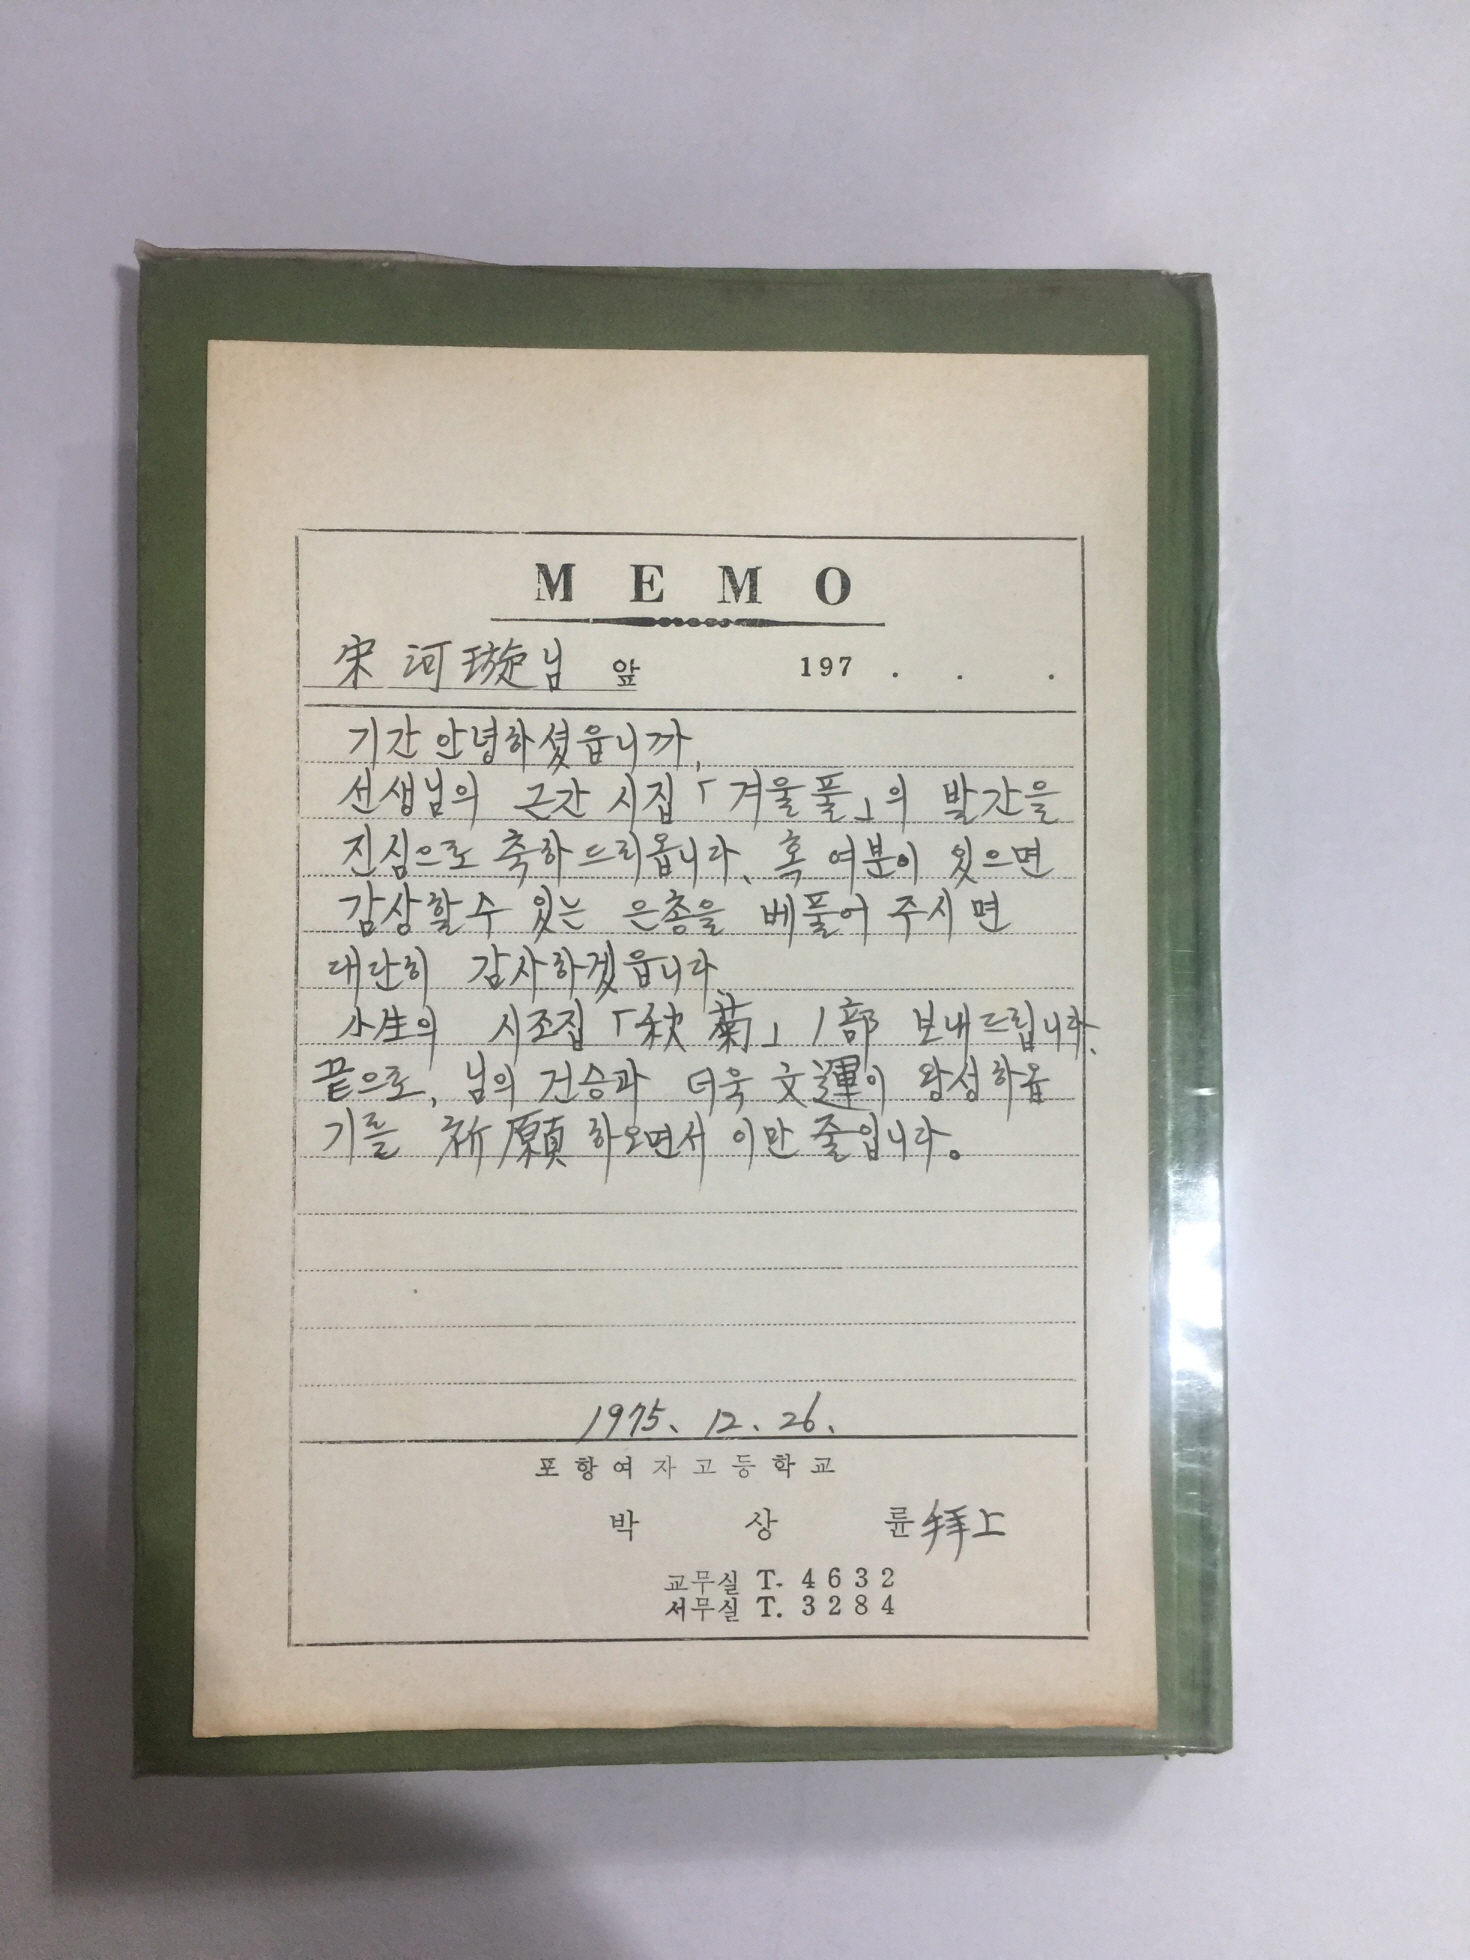 MEMO
宋河璇님 앞 197 . . .
기간 안녕하셨읍니까,
선생님의 근간 시집「겨울풀」의 발간을
진심으로 축하드리옵니다. 혹 여분이 있으면
감상할수 있는 은총을 베풀어 주시면
대단히 감사하겠읍니다.
小生의 시조집「秋菊」1部 보내드립니다.
끝으로, 님의 건승과 더욱 文運이 왕성하옵
기를 祈願하오면서 이만 줄입니다。
1975. 12. 26.
포항여자고등학교
박 상 륜 拜上
교무실 T. 4632
서무실 T. 3284